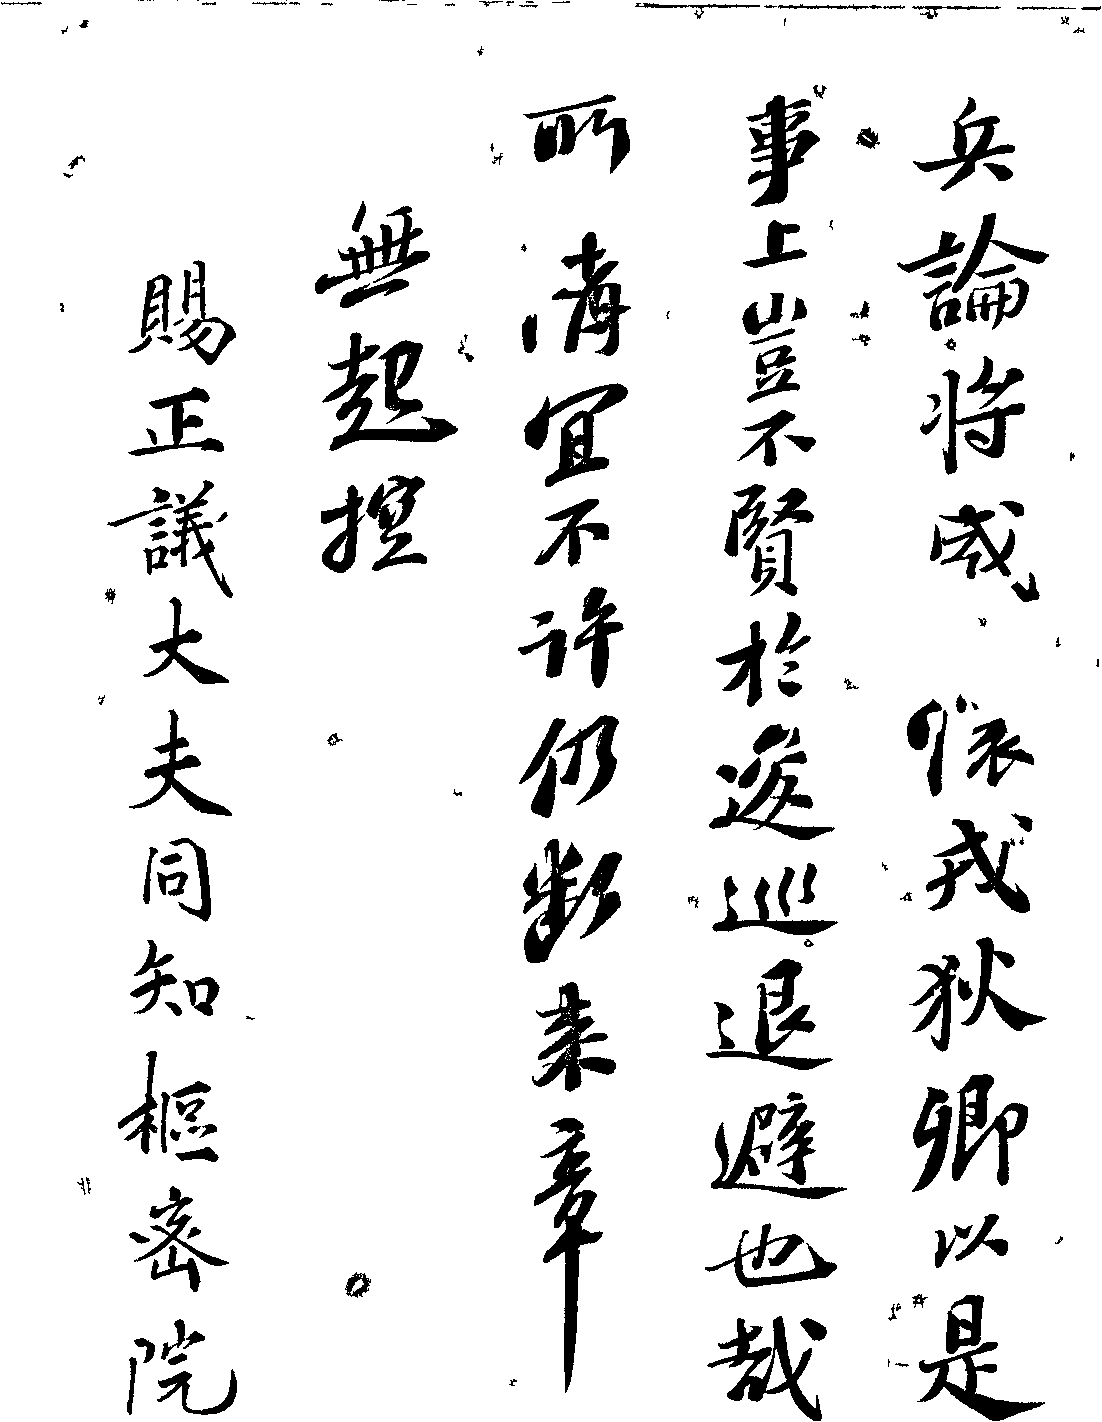 兵論將威懷戎狄卿以是
事上豈不賢於逡巡退避也哉
所請宜不許仍斷來章
無起控
賜正議大夫同知樞密院